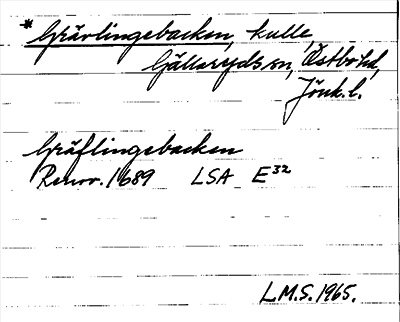 * Grävlingebacken, kulle,
Gällaryds sn, Östbo hd,
Jönk. l.
Gräflingebacken
Renov. 1689 LSA E³²
L.M.S. 1965.